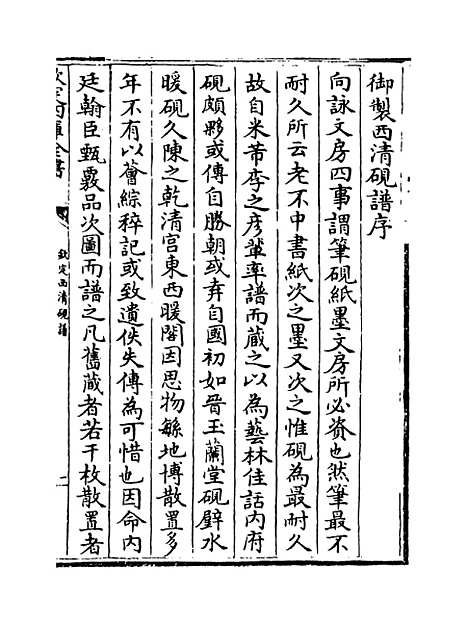 御製西清硯譜序
向詠文房四事謂筆硯紙墨文房所必資也然筆最不
耐久所云老不中書紙次之墨又次之惟硯為最耐久
故自米芾李之彥輩率譜而藏之以為藝林佳話内府
硯頗夥或傳自勝朝或弆自國初如晉玉蘭堂硯璧水
暖硯久陳之乾清宫東西暖閣因思物緐地博散置多
年不有以薈綜稡記或致遺佚失傳為可惜也因命内
廷翰臣甄覈品次圖而譜之凡舊藏者若干枚散置者
欽定四庫全書
欽定西清硯譜